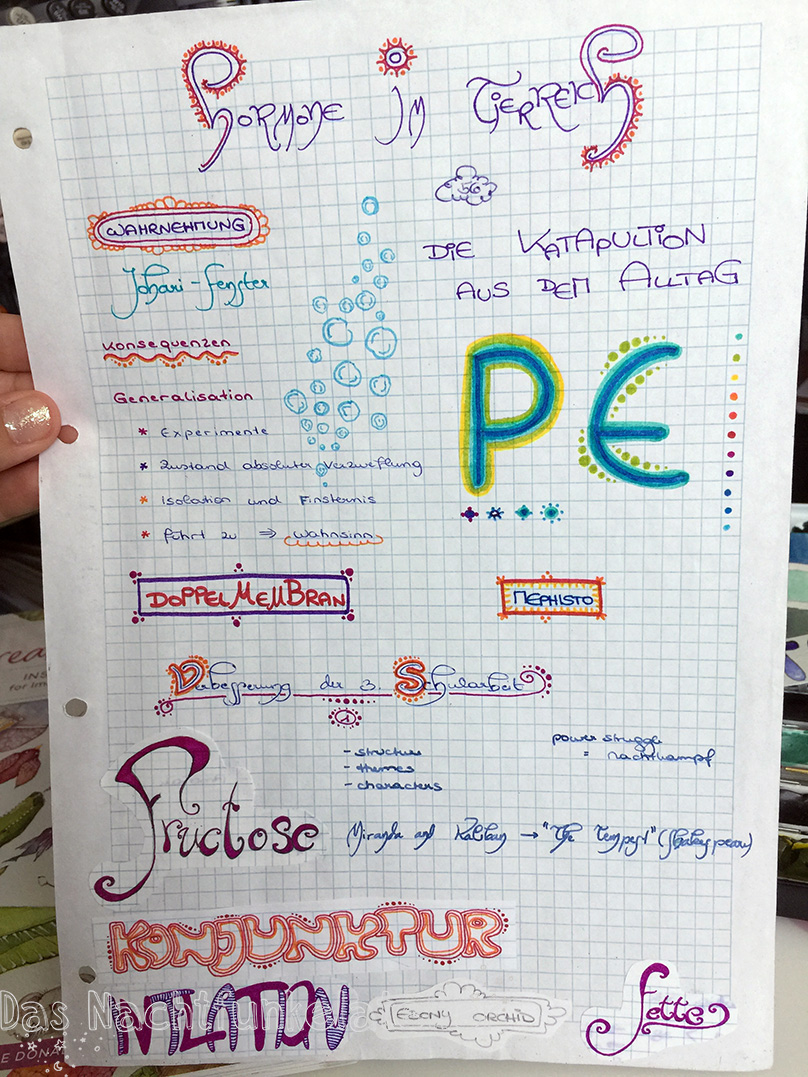 Hormone im Tierreich
56
Wahrnehmung
Die Katapultion
aus dem Alltag
Johari-Fenster
Konsequenzen
PE
Generalisation
* Experimente
* Zustand absoluter Verzweiflung
* Isolation und Finsternis
* führt zu ⇒ Wahnsinn
DoppelMemBran
Mephisto
Verbesserung der 3. Schularbeit
1
- structure
- themes
- characters
power struggle
= Machtkampf
Fructose
Miranda and Kaliban → "The Tempest" (Shakespeare)
KONJUNKTUR
INFLATION
EBONY ORCHID
Fette
Das Nachtfunkeln